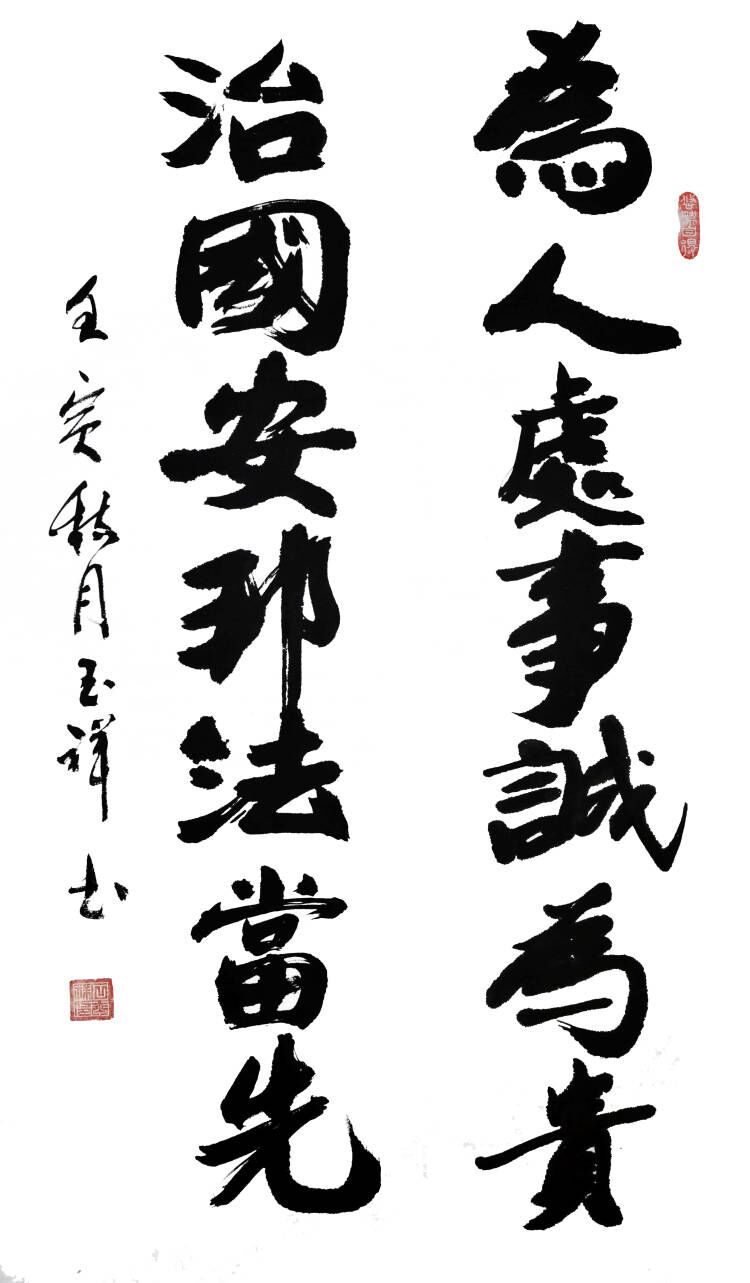 為人處事誠為貴
治國安邦法當先
壬寅秋月玉祥书